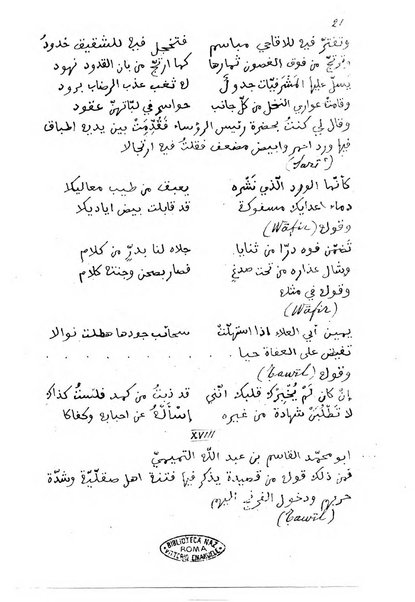 21
وتفترّ فيه للاقاحي مباسم فتخجل فيه للشقيق خدودُ
وترتجّ من فوق الغصون ثمارها كما ارتجّ من بان القدود نهود
يسلّ عليها المشرفيّات جدولٌ له ثغب عذب الرضاب برود
وقامت عواري النخل من كلّ جانب حواسر في لبّاتهنّ عقود
وقال لي كنتُ بحضرة رئيس الرؤساء فقُدِّمتْ بين يديه اطباق
فيها ورد احمر وابيض مضعف فقلتُ فيه ارتجالا
(Sarīʿ)
كأنّما الورد الّذي نَشْره يعبق من طيب معاليكا
دماء اعدايك مسفوكة قد قابلت بيض اياديكا
وقوله (Wāfir)
تضمّن فوه درّا من ثنايا جلاه لنا بدرٌ من كلام
وشال عذاره من تحت صدغٍ فصار بصحن وجنته كلام
وقوله في مثله
(Wāfir)
يمين أبي العلاء اذا استهلّتْ سحائب جودها هطلت نوالا
تفيض على العفاة حيا . . . . . . . . . .
وقوله (Ṭawīl)
إن كان لَمْ يُخْبِرْك قلبك انّني قد ذبتُ من كمد فلستُ كذاك
لا تطلُبَنْ شهادة من غيره اِسْألهُ عن احبابه وكفاكا
XVIII
ابو محمّد القاسم بن عبد اللّه التميميّ
فمن ذلك قوله من قصيدة يذكر فيها فتنة اهل صقلّيّة وشدّة
حربهم ودخول الفرنج اليهم
(Ṭawīl)
BIBLIOTECA NAZ.
ROMA
VITTORIO EMANUELE